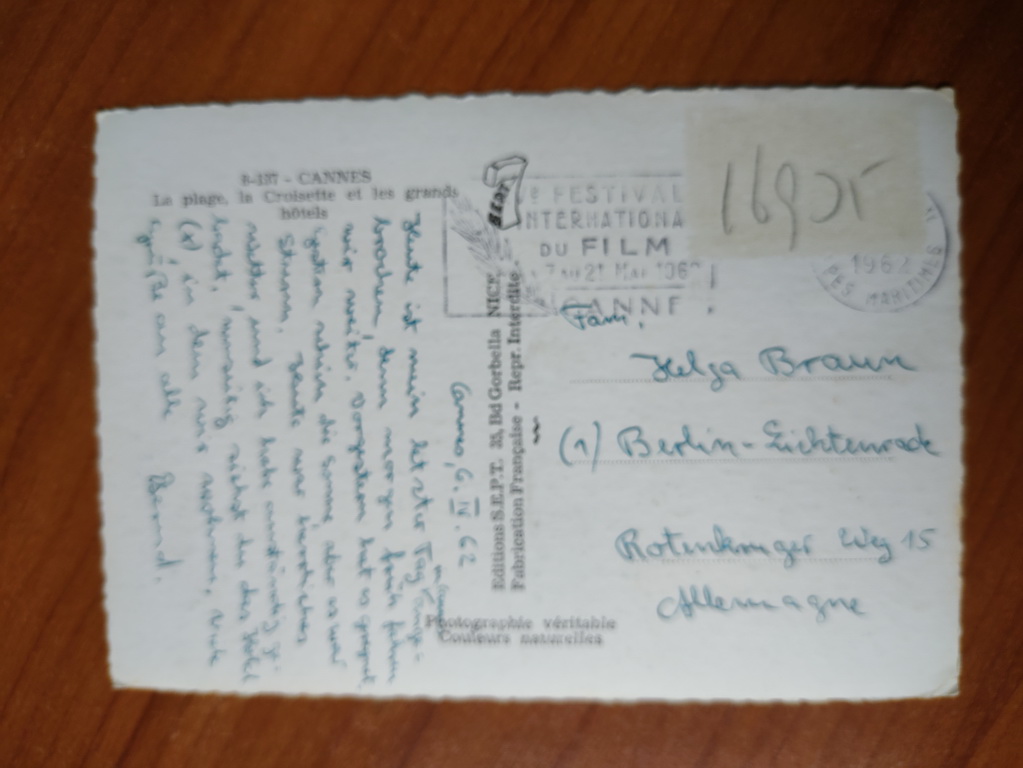 8-137 - CANNES
La plage, la Croisette et les grands
hôtels
Cannes, 6. IV. 62
Heute ist mein letzter Tag ange-
brochen, denn morgen früh fahren
wir weiter. Vorgestern hat es geregnet
gestern schien die Sonne, aber es war
Sturm. Heute war herrliches
Wetter und ich habe anständig ge-
badet. siehst du das Hotel
(x) in dem wir wohnen. Viele
Grüße an alle
Bernd.
Editions S.E.P.T. 33, Bd Gorbella NICE
Fabrication Française - Repr. Interdite
Photographie véritable
Couleurs naturelles
FESTIVAL
INTERNATIONA
DU FILM
7 au 21 Mai 1962
CANNES
1962
PES MARITIMES
Fam.
Helga Braun
(1) Berlin-Lichtenrade
Rotenkruger Weg 15
Allemagne